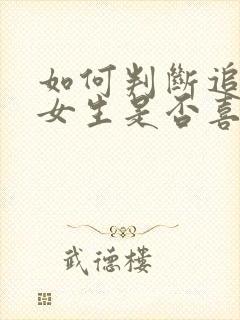 如何判斷追
女生是否喜
武德樓